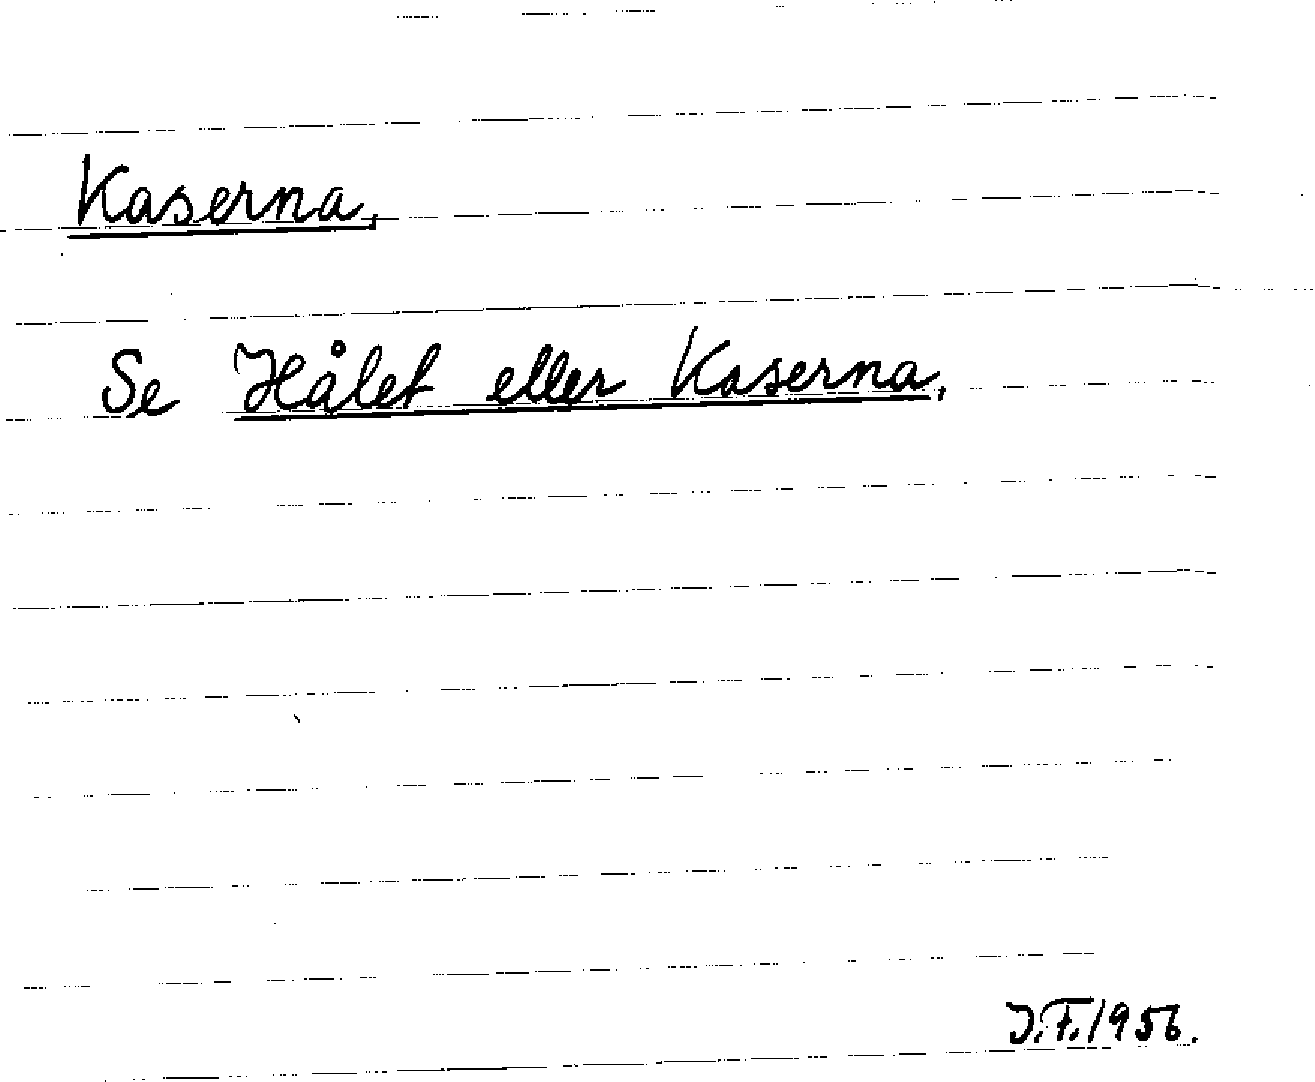 Kaserna,
Se Hålet eller Kaserna,
J.F. 1956.